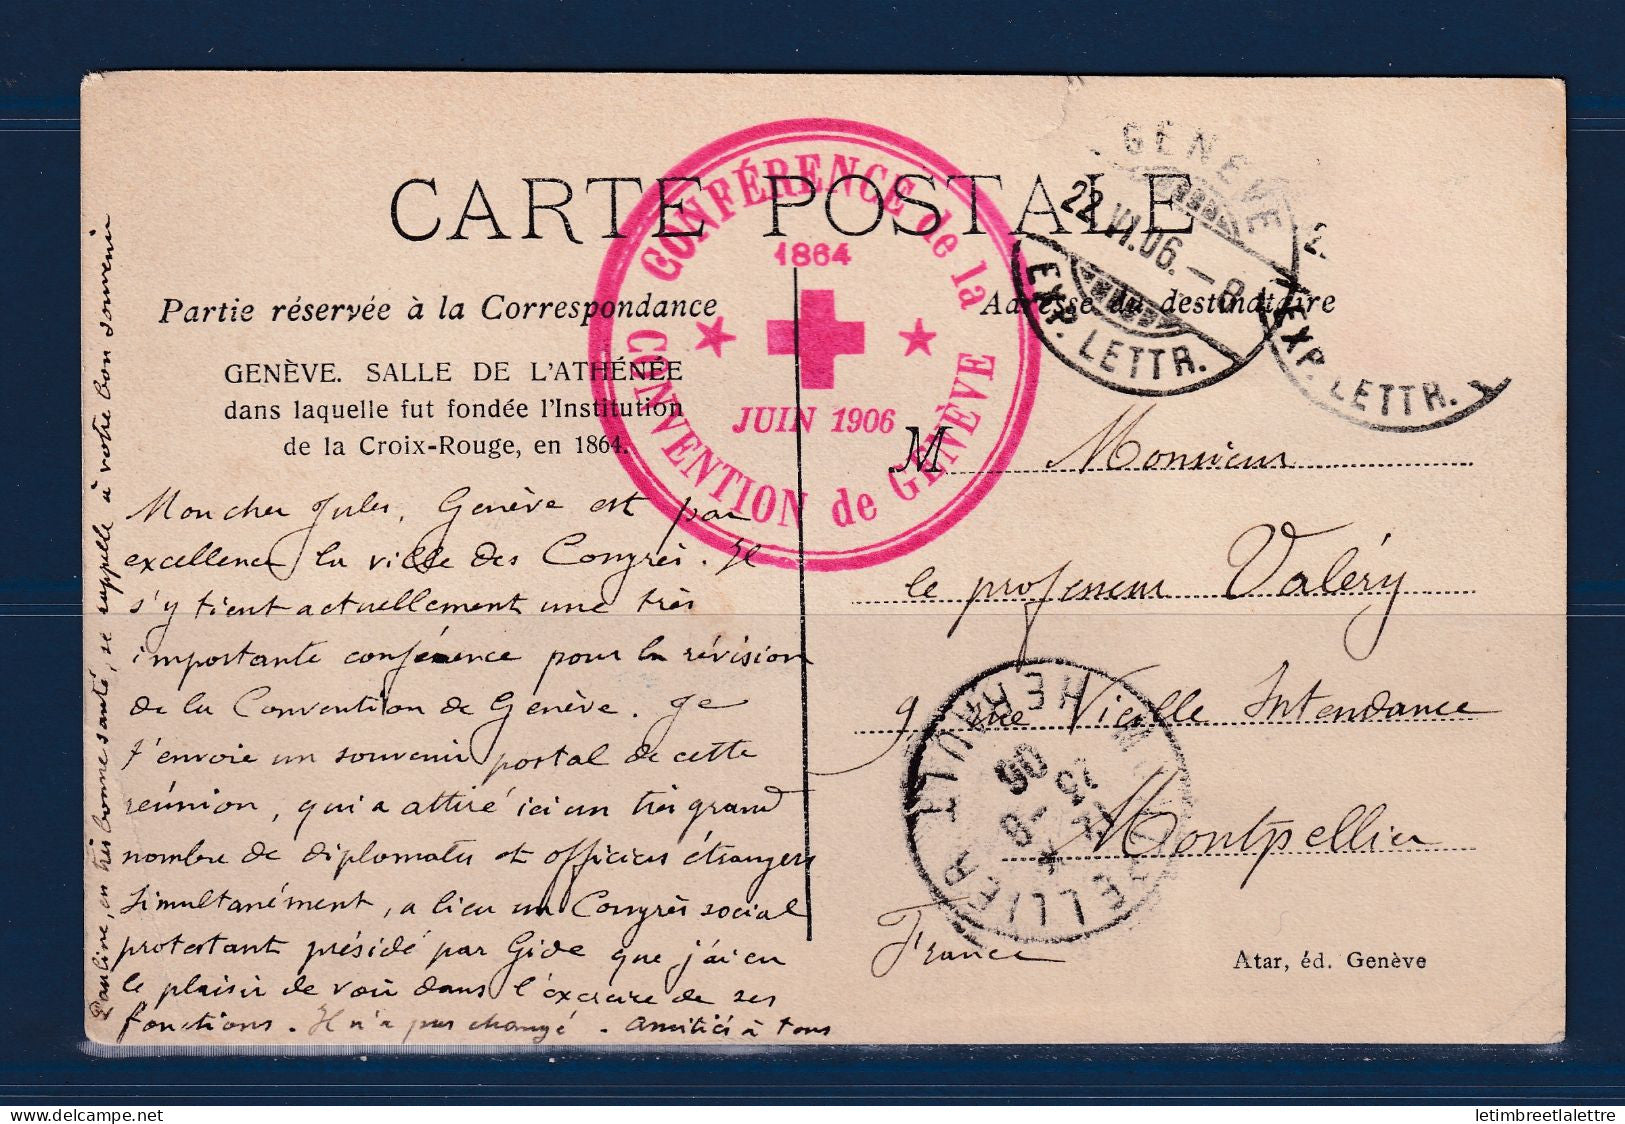 CARTE POSTALE
Partie réservée à la Correspondance
Adresse du destinataire
GENÈVE. SALLE DE L'ATHÉNÉE
dans laquelle fut fondée l'Institution
de la Croix-Rouge, en 1864.
CONFÉRENCE de la
CONVENTION de GENÈVE
1864
JUIN 1906
GENÈVE
22.VI.06.-8
EXP. LETTR.
GENÈVE
EXP. LETTR.
Mon cher Jules, Genève est par
excellence la ville des Congrès. Il
s'y tient actuellement une très
importante conférence pour la révision
de la Convention de Genève. Je
t'envoie un souvenir postal de cette
réunion, qui a attiré ici un très grand
nombre de diplomates et officiers étrangers
simultanément, a lieu un Congrès social
protestant présidé par Gide que j'ai eu
le plaisir de voir dans l'exercice de ses
fonctions. Il n'a pas changé. Amitiés à tous
Pauline, en très bonne santé, se rappelle à votre bon souvenir
M Monsieur
le professeur Valéry
9, rue Vieille Intendance
Montpellier
France
MONTPELLIER
HERAULT
Atar, éd. Genève
letimbreetlalettre
delcampe.net